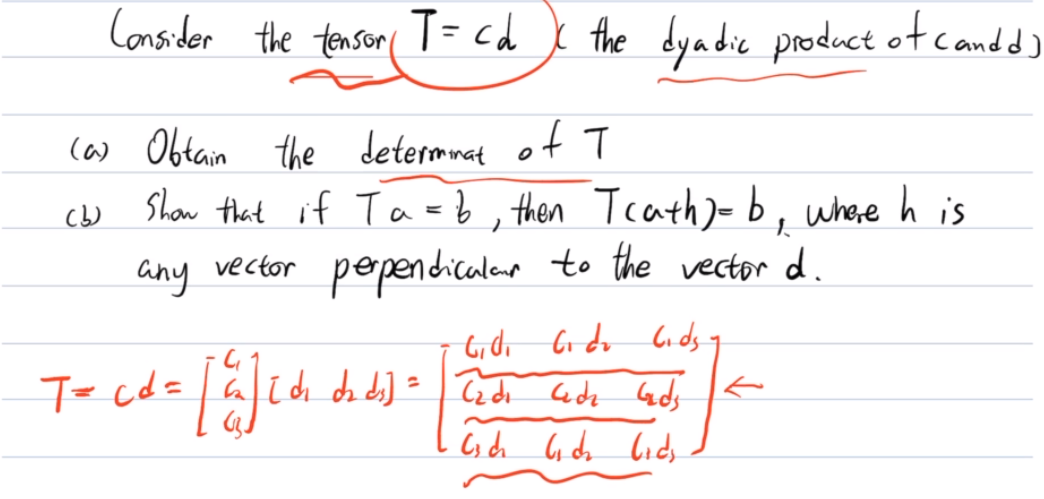 Consider the tensor T = cd ( the dyadic product of c and d )
(a) Obtain the determinat of T
(b) Show that if Ta = b, then T(a+h) = b, where h is
any vector perpendicular to the vector d.
T = cd = [c₁ c₂ c₃] [d₁ d₂ d₃] = [c₁d₁ c₁d₂ c₁d₃
c₂d₁ c₂d₂ c₂d₃
c₃d₁ c₁d₂ c₁d₃] ←